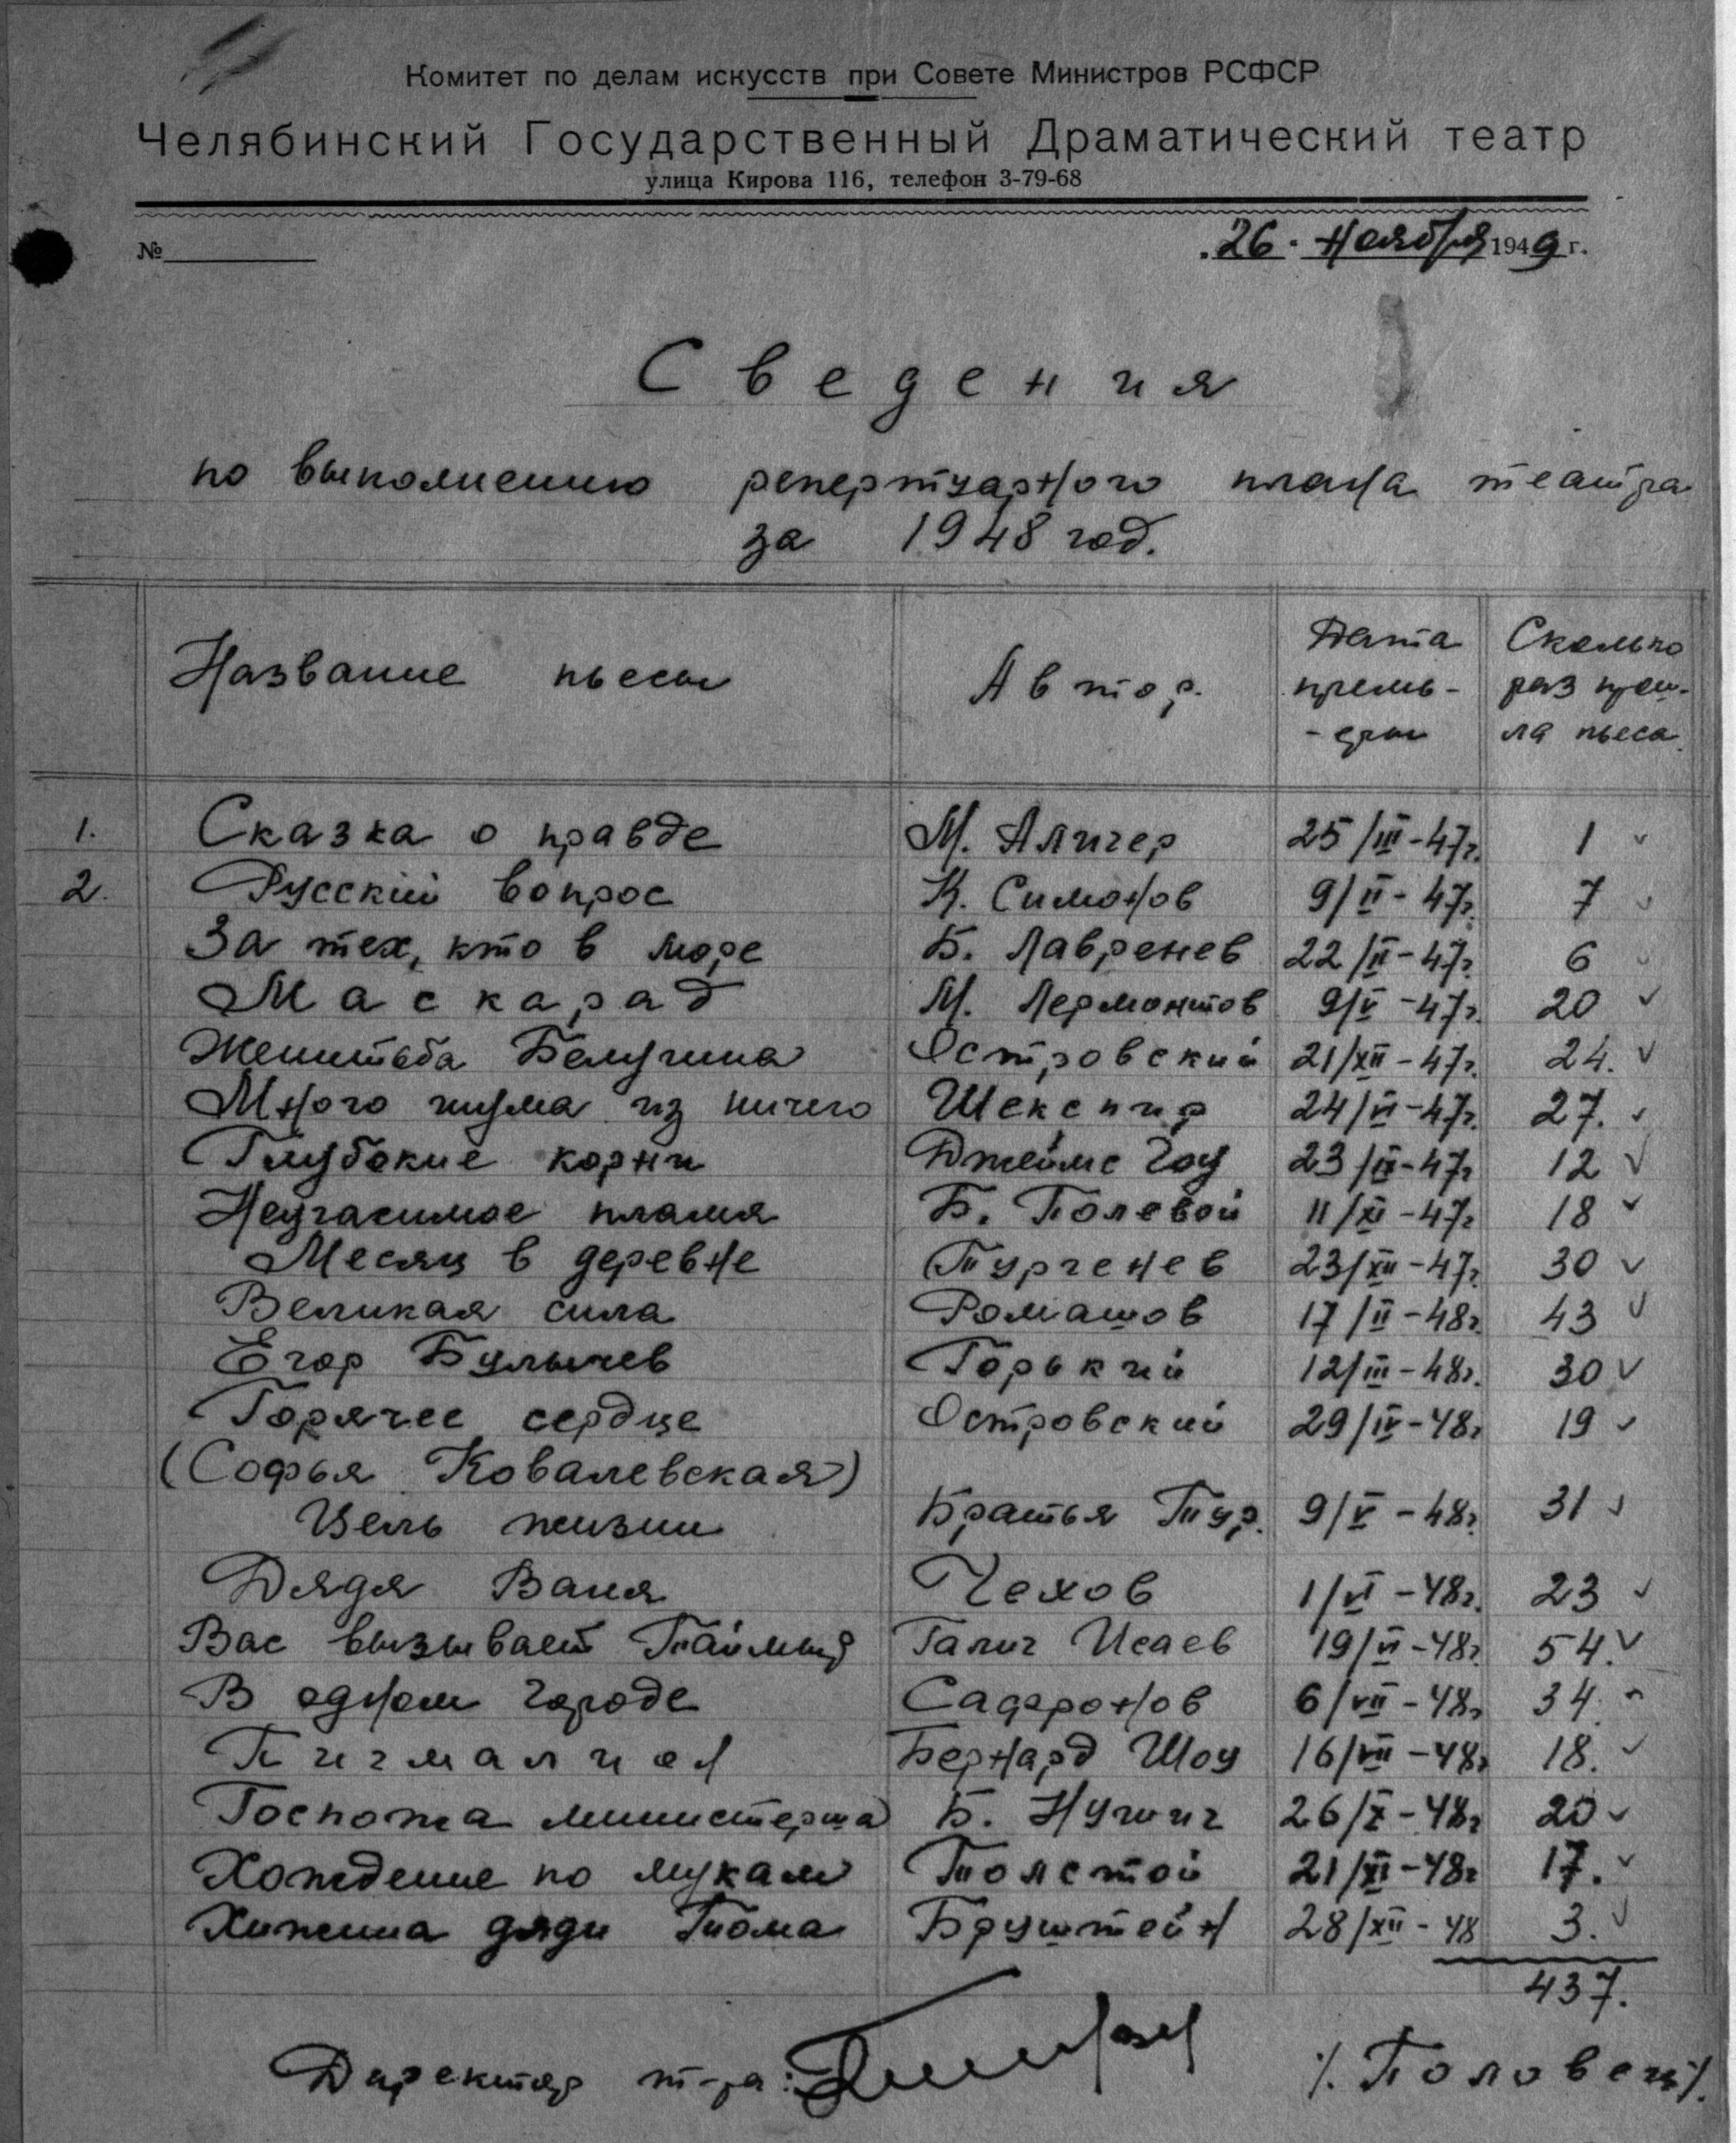 Комитет по делам искусств при Совете Министров РСФСР
Челябинский Государственный Драматический театр
улица Кирова 116, телефон 3-79-68
№ 26. ноября 1949 г.
Сведения
по выполнению репертуарного плана театра
за 1948 год.
Название пьесы Автор. Дата премь--еры Сколько раз прош-ла пьеса
1. Сказка о правде М. Алигер 25/III-47г. 1
2. Русский вопрос К. Симонов 9/II-47г. 7
За тех, кто в море Б. Лавренев 22/II-47г. 6
Маскарад М. Лермонтов 9/V-47г. 20
Женитьба Белугина Островский 21/XII-47г. 24.
Много шума из ничего Шекспир 24/VI-47г. 27.
Глубокие корни Джеймс Гоу 23/IX-47г 12
Неугасимое пламя Б. Полевой 11/XI-47г 18
Месяц в деревне Тургенев 23/XII-47г. 30
Великая сила Ромашов 17/II-48г. 43
Егор Булычев Горький 12/III-48г. 30
Горячее сердце Островский 29/IV-48г 19
(Софья Ковалевская)
Цель жизни Братья Тур. 9/V-48г. 31
Дядя Ваня Чехов 1/VI-48г. 23
Вас вызывает Таймыр Галич Исаев 19/VI-48г. 54.
В одном городе Сафронов 6/VII-48г 34.
Пигмалион Бернард Шоу 16/VII-48г 18.
Госпожа министерша Б. Нушич 26/X-48г 20
Хождение по мукам Толстой 21/XI-48г 17.
Хижина дяди Тома Бруштейн 28/XII-48 3.
437.
Директор т-ра: /.Половец/.